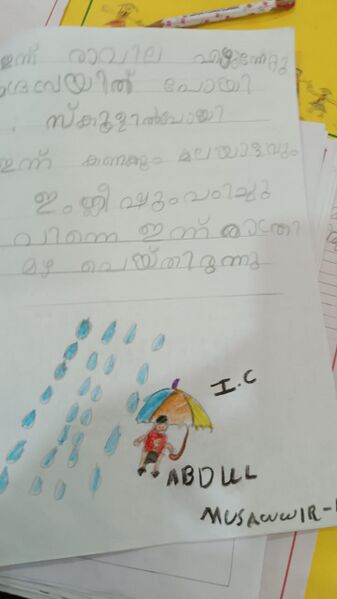 ഇന്ന് രാവിലെ എഴുന്നേറ്റു
പോയി
സ്കൂളിൽപോയി
ഇന്ന് കണക്കും മലയാളവും
ഇംഗ്ലീഷും പഠിച്ചു
പിന്നെ ഇന്ന് രാത്രി
മഴ പെയ്തിരുന്നു
I.C
ABDUL
MUSAWWIR-